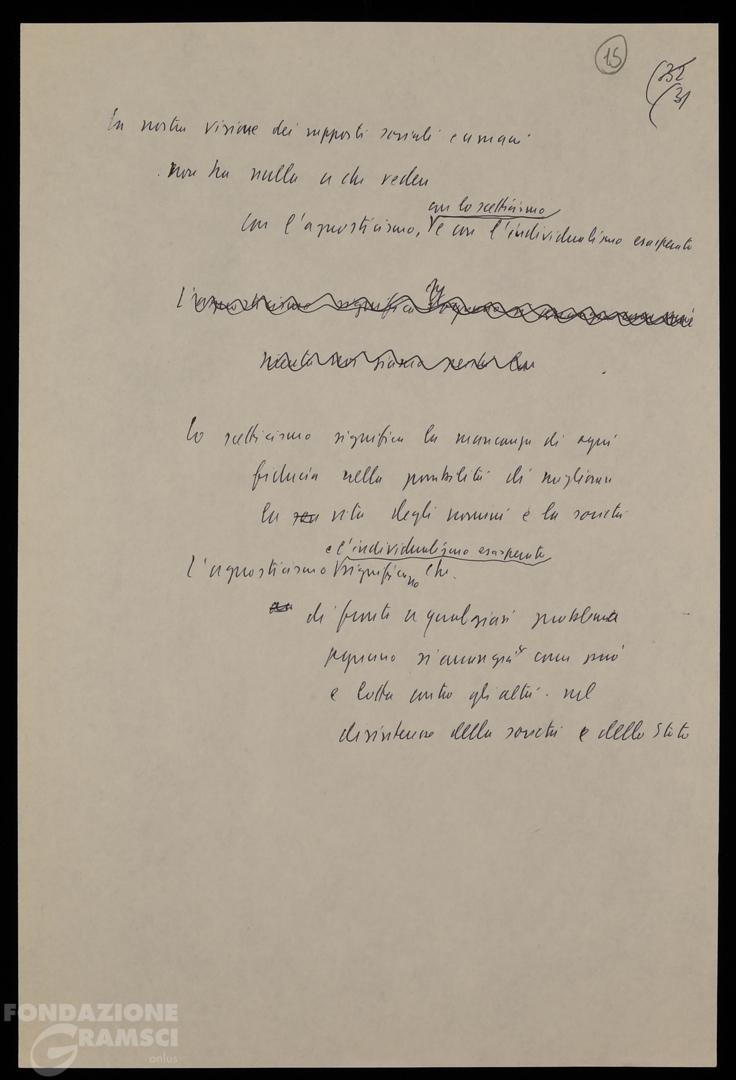 15
32
31
La nostra visione dei rapporti sociali e umani
non ha nulla a che vedere
con lo scetticismo
con l'agnosticismo, e con l'individualismo esasperato
L'agnosticismo significa ognuno si arrangia come può
Lo scetticismo significa la mancanza di ogni
fiducia nella possibilità di migliorare
la vita degli uomini e la società
e l'individualismo esasperato
L'agnosticismo significano che
di fronte a qualsiasi problema
ognuno si arrangia come può
e lotta contro gli altri nel
disinteresse della società e dello Stato
FONDAZIONE
GRAMSCI
onlus